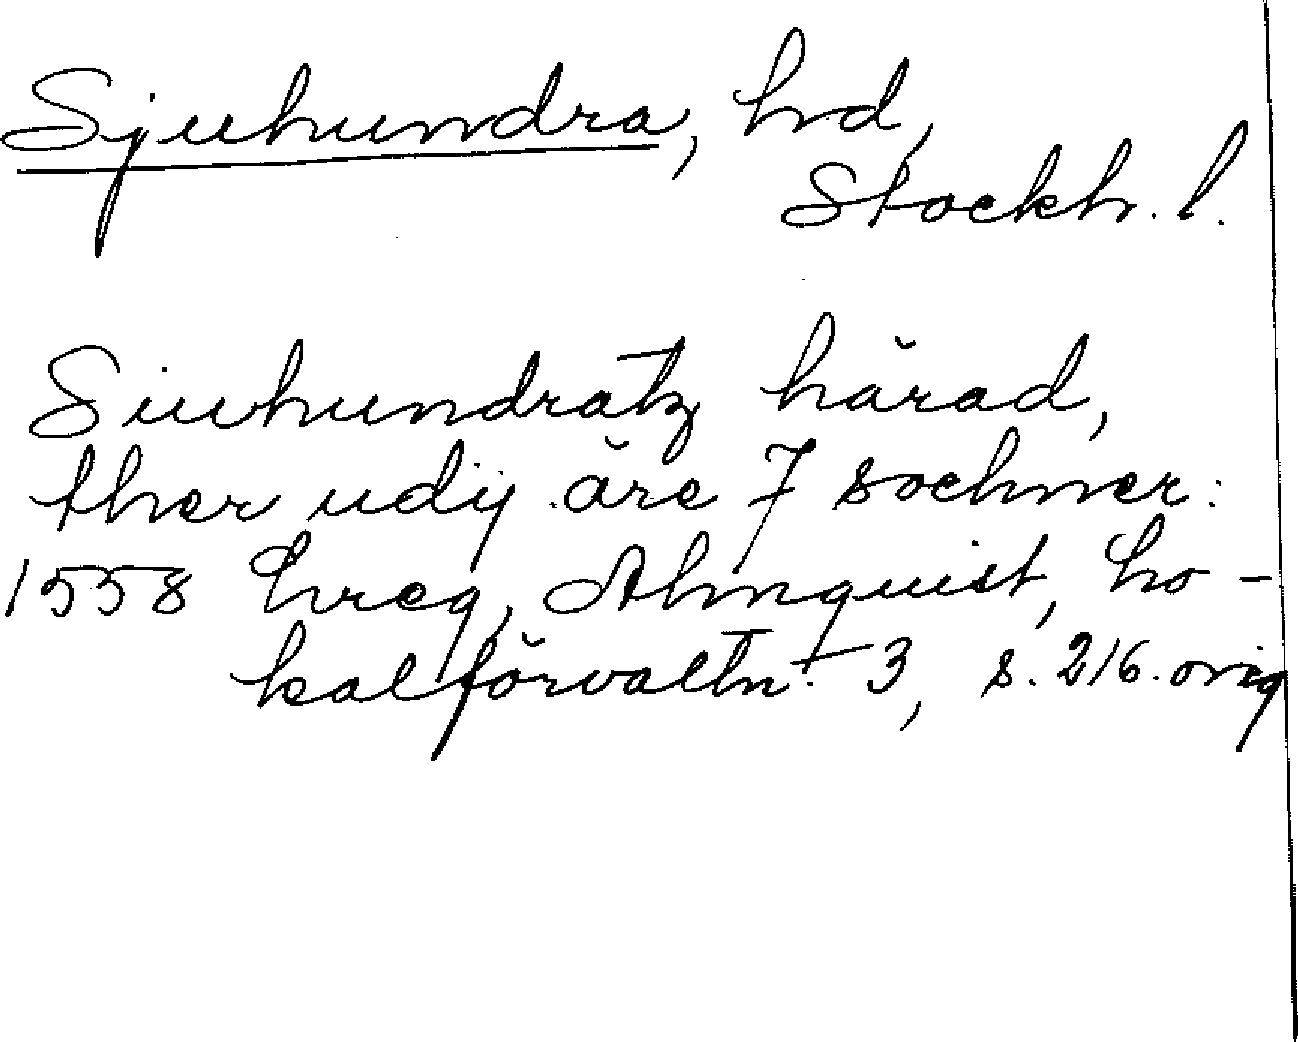 Sjuhundra, hd,
Stockh. l.
Siuhundratz härad,
ther udij äre 7 sochner:
1558 hreg, Almquist, Lo-
kalförvaltn. 3, s. 216. orig